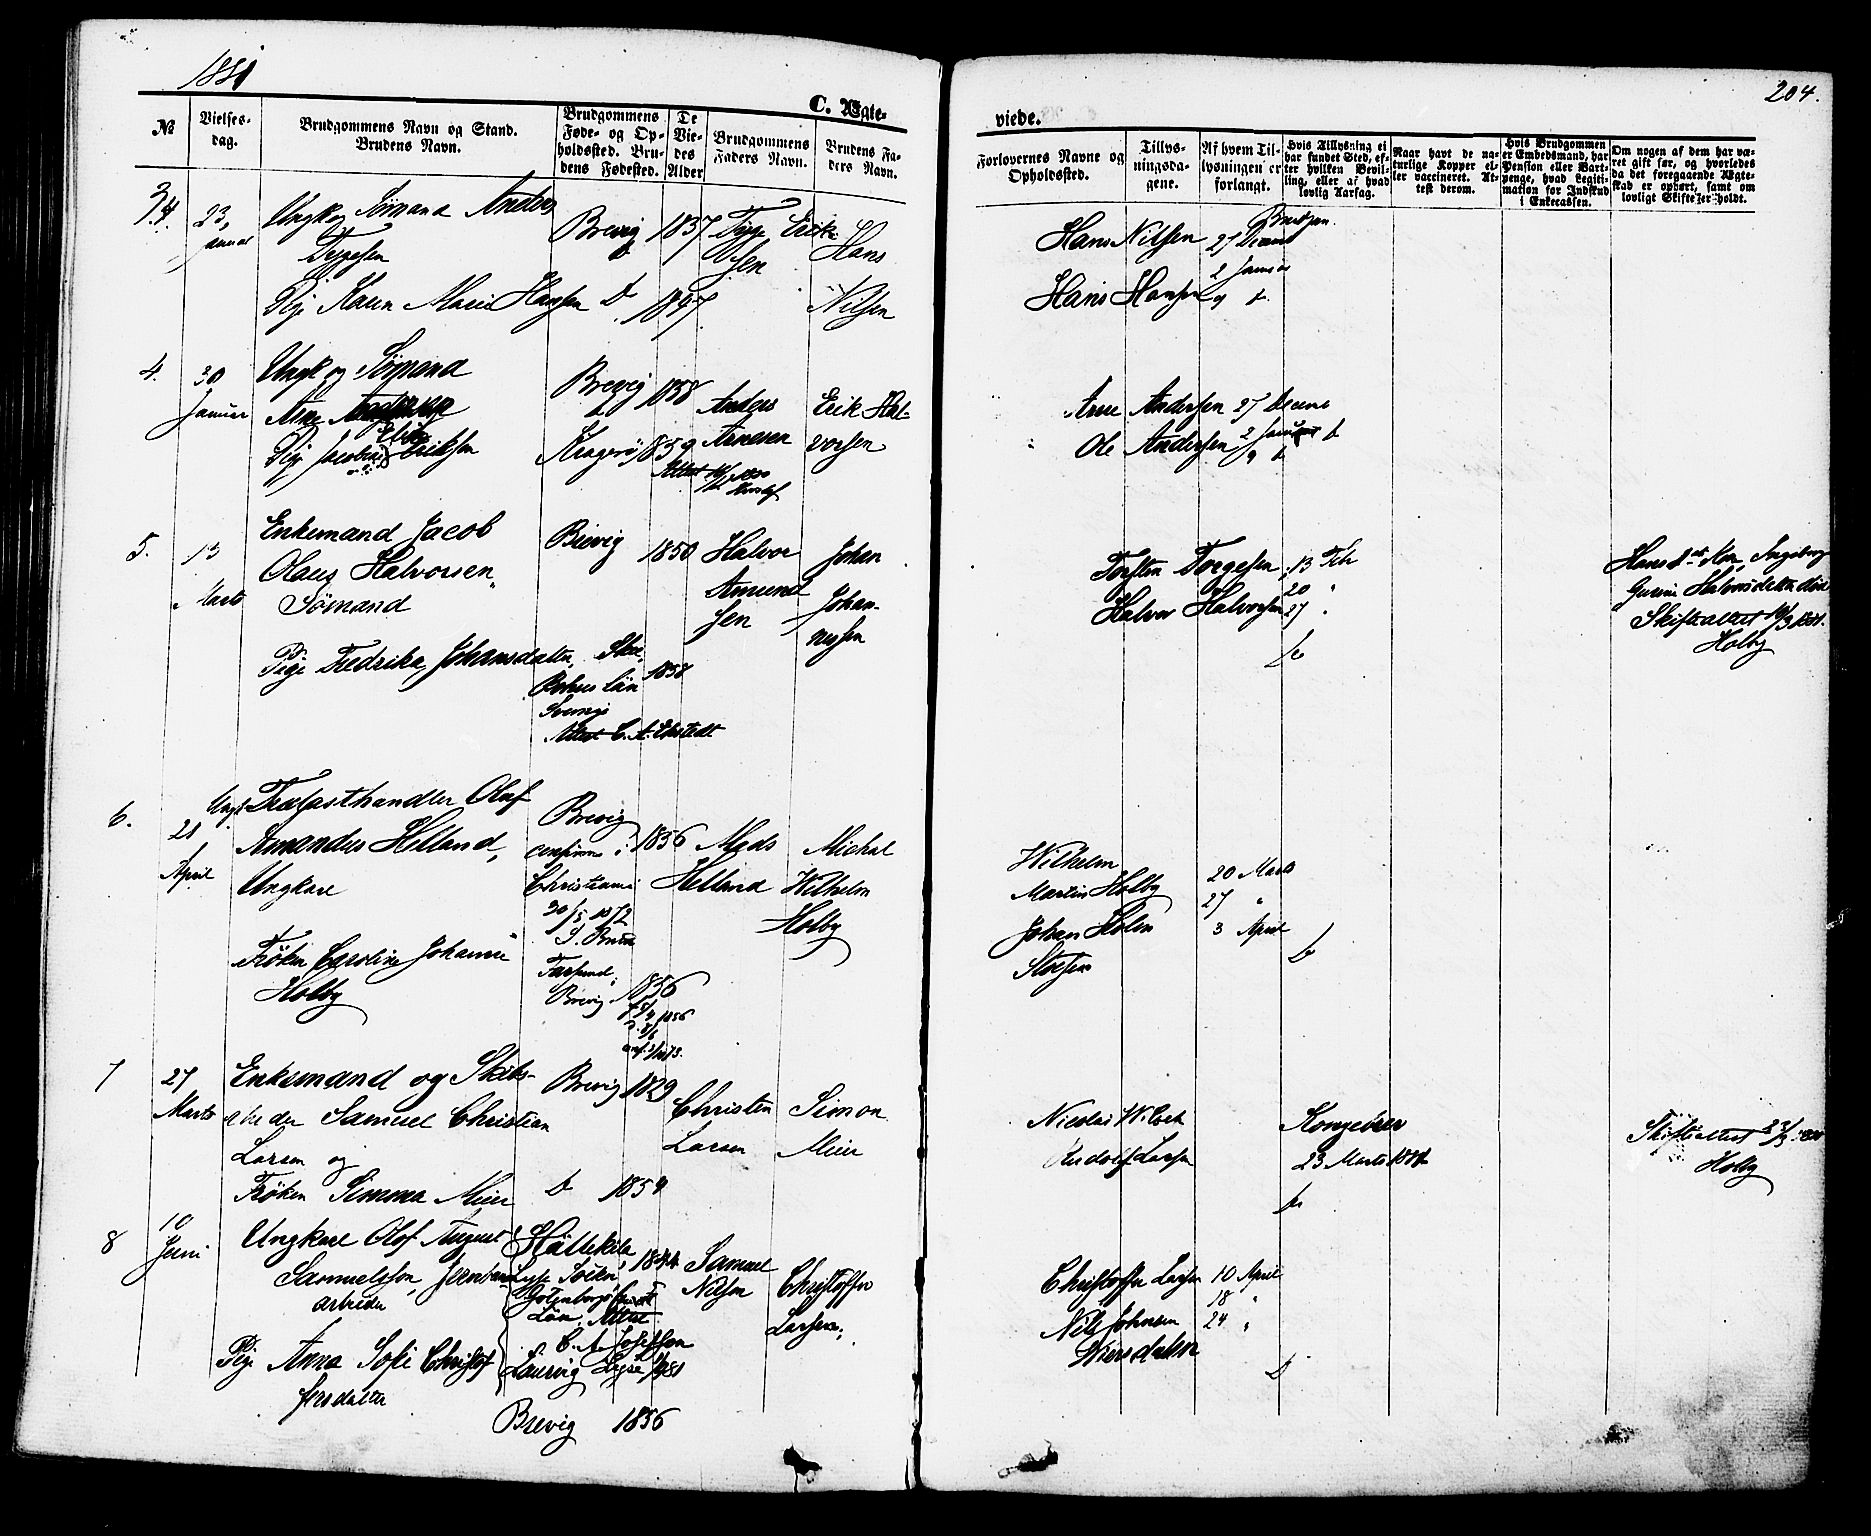 1881
204.
C. Ægte-
viede.
№
Vielses-
dag.
Brudgommens Navn og Stand.
Brudens Navn.
Brudgommens
Føde- og Op-
holdssted. Bru-
dens Fødested.
De
Vie-
des
Alder
Brudgommens
Faders Navn.
Brudens Fa-
ders Navn.
Forlovernes Navne og
Opholdssted.
Tillys-
ningsda-
gene.
Af hvem Til-
lysningen er
forlangt.
Hvis Tillysning ei
har fundet Sted, ef-
ter hvilken Bevil-
ling, eller af hvad
lovlig Aarsag.
Naar havt de na-
turlige Kopper el-
ler vaccineret. At-
test derom.
Hvis Brudgommen
er Embedsmand, har
Pension eller Vart-
penge, hvad Legiti-
mation for Indskud
i Enkecassen.
Om nogen af dem har væ-
ret gift før, og hvorledes
da det foregaaende Ægte-
skab er ophørt, samt om
lovligt Skifte er holdt.
23
Ungk og Sømand Anders
Tygesen
Pige Karen Marie Hansen
Brevig
D
1837
Tyge Erik-
sen
Hans
Nilsen
Hans Nilsen 27 Decemb
2 Januar
Hans Hansen 9 D
4.
30
Januar
Ungk og Sømand
Arne
Pige Jacobine Eriksen
Brevig
Kragerø
1858
1859
Anders
Arnesen
Erik Hal-
vorsen
Arne Andersen 27 Decemb
Ole Andersen 2 Januar D
9 D
5.
13
Marts
Enkemand Jacob
Olaus Halvorsen
Sømand
Pige Fredrika Johansdatter
Brevig
Bohus Län
Sverige
Attest C. A.
1850
1858
Halvor
Amund
sen
Johan
Johan-
nessen
Torsten Torgesen 13 Feb
20 "
Halvor Halvorsen 27 "
Hans 1ste Kone, Ingeborg
Halvorsdatter død
Skifteattest
Holby
6.
21
April
Ungk. Trælasthandler Oluf
Amandus Helland,
Ungkarl
Frøken Caroline Johanne
Holby
Brevig
confirm i
Christiania
30/5 1872
Farsund
Brevig
1856
1856
Mads
Helland
Michal
Wilhelm
Holby
Wilhelm
Martin Holby
Johan Holm
20 Marts
27 "
3 April
7
27
Marts
Enkemand og Skibs-
rheder Samuel Christian
Larsen og
Frøken Simona Meier
Brevig
D
1829
1854
Christen
Larsen
Simon
Meier
Nicolai
Rudolf Larsen
Kongebrev
23 Marts 1881
Skifteattest 23/3 1881
Holby
8
10
Juni
Ungkarl Olof August
Samuelsson, Jernbane
arbeider
Pige Anna Sofie Christof
fersdatter
Lyse Soken
Gøteborgs
Län, Attest
C. A. Josefsson
Laurvig Lyse
Brevig
1844
1856
Samuel
Nilsen
Christoffer
Larsen
Christoffer Larsen 10 April
18 "
Nils Johnsen 24 "